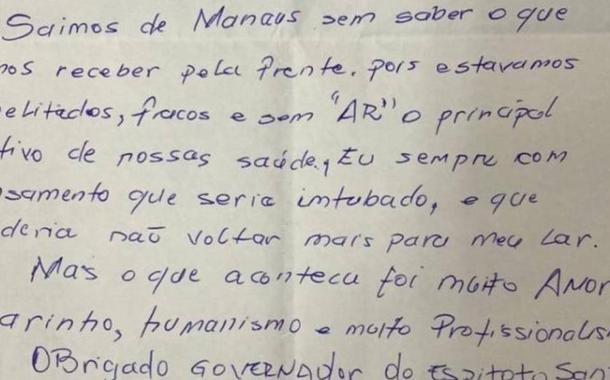 Saimos de Manaus sem saber o que
nos receber pela frente. pois estavamos
elitados, fracos e sem "AR" o principal
tivo de nossas saúde., EU sempre com
samento que seria imtubado, e que
deria naõ voltar mais para meu Lar.
Mas o que aconteceu foi muito AMOR
arinho, humanismo e muito Profissionalis
OBrigado GOVERNADOR do ESPITOTO San